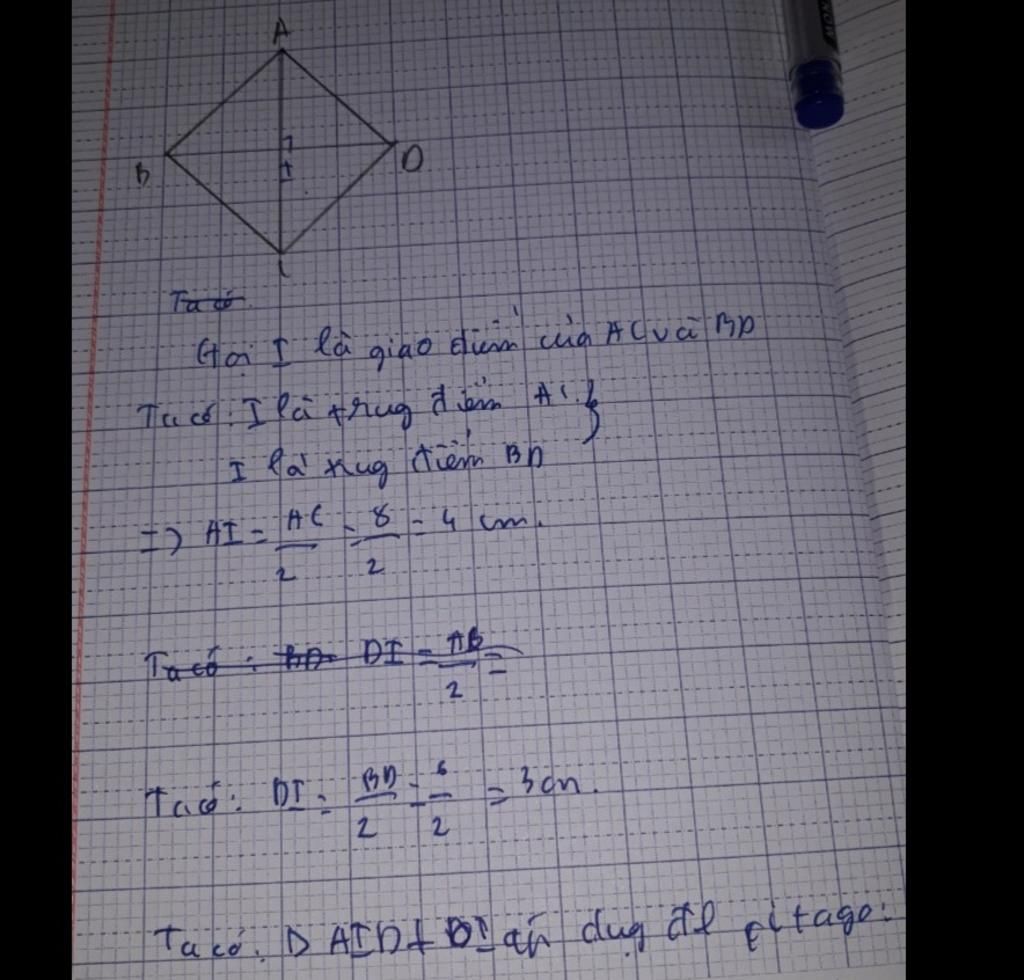 A
B
D
I
C
Ta có
Gọi I là giao điểm của AC và BD
Ta có: I là trug điểm AC }
I là trug điểm BD
=> AI = AC/2 = 8/2 = 4 cm.
Ta có: BD DI = AB/2 =
Ta có: DI = BD/2 = 6/2 = 3 cm.
Ta có: D AID + DI áp dụg đl pitago: